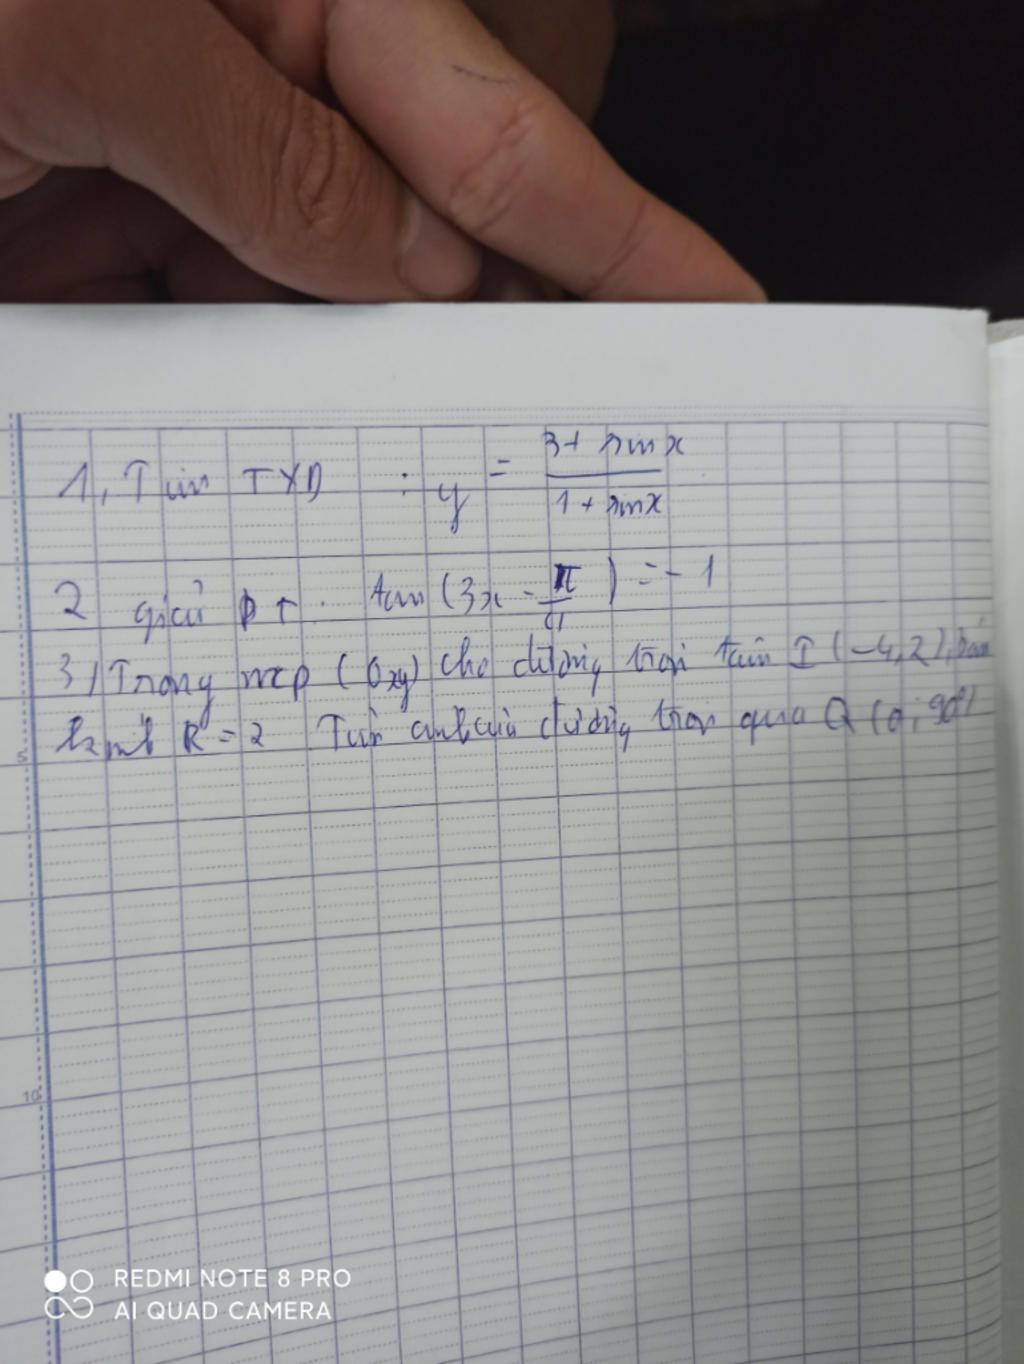 1, Tìm TXD : y = 3+ sinx / 1 + sinx
2 giải pt . tan (3x - π/ ) = - 1
3) Trong mp (Oxy) cho đường tròn tâm I (-4,2), bán
kính R = 2 Tìm ảnh của đường tròn qua Q (0; 90°)
5
10
REDMI NOTE 8 PRO
AI QUAD CAMERA